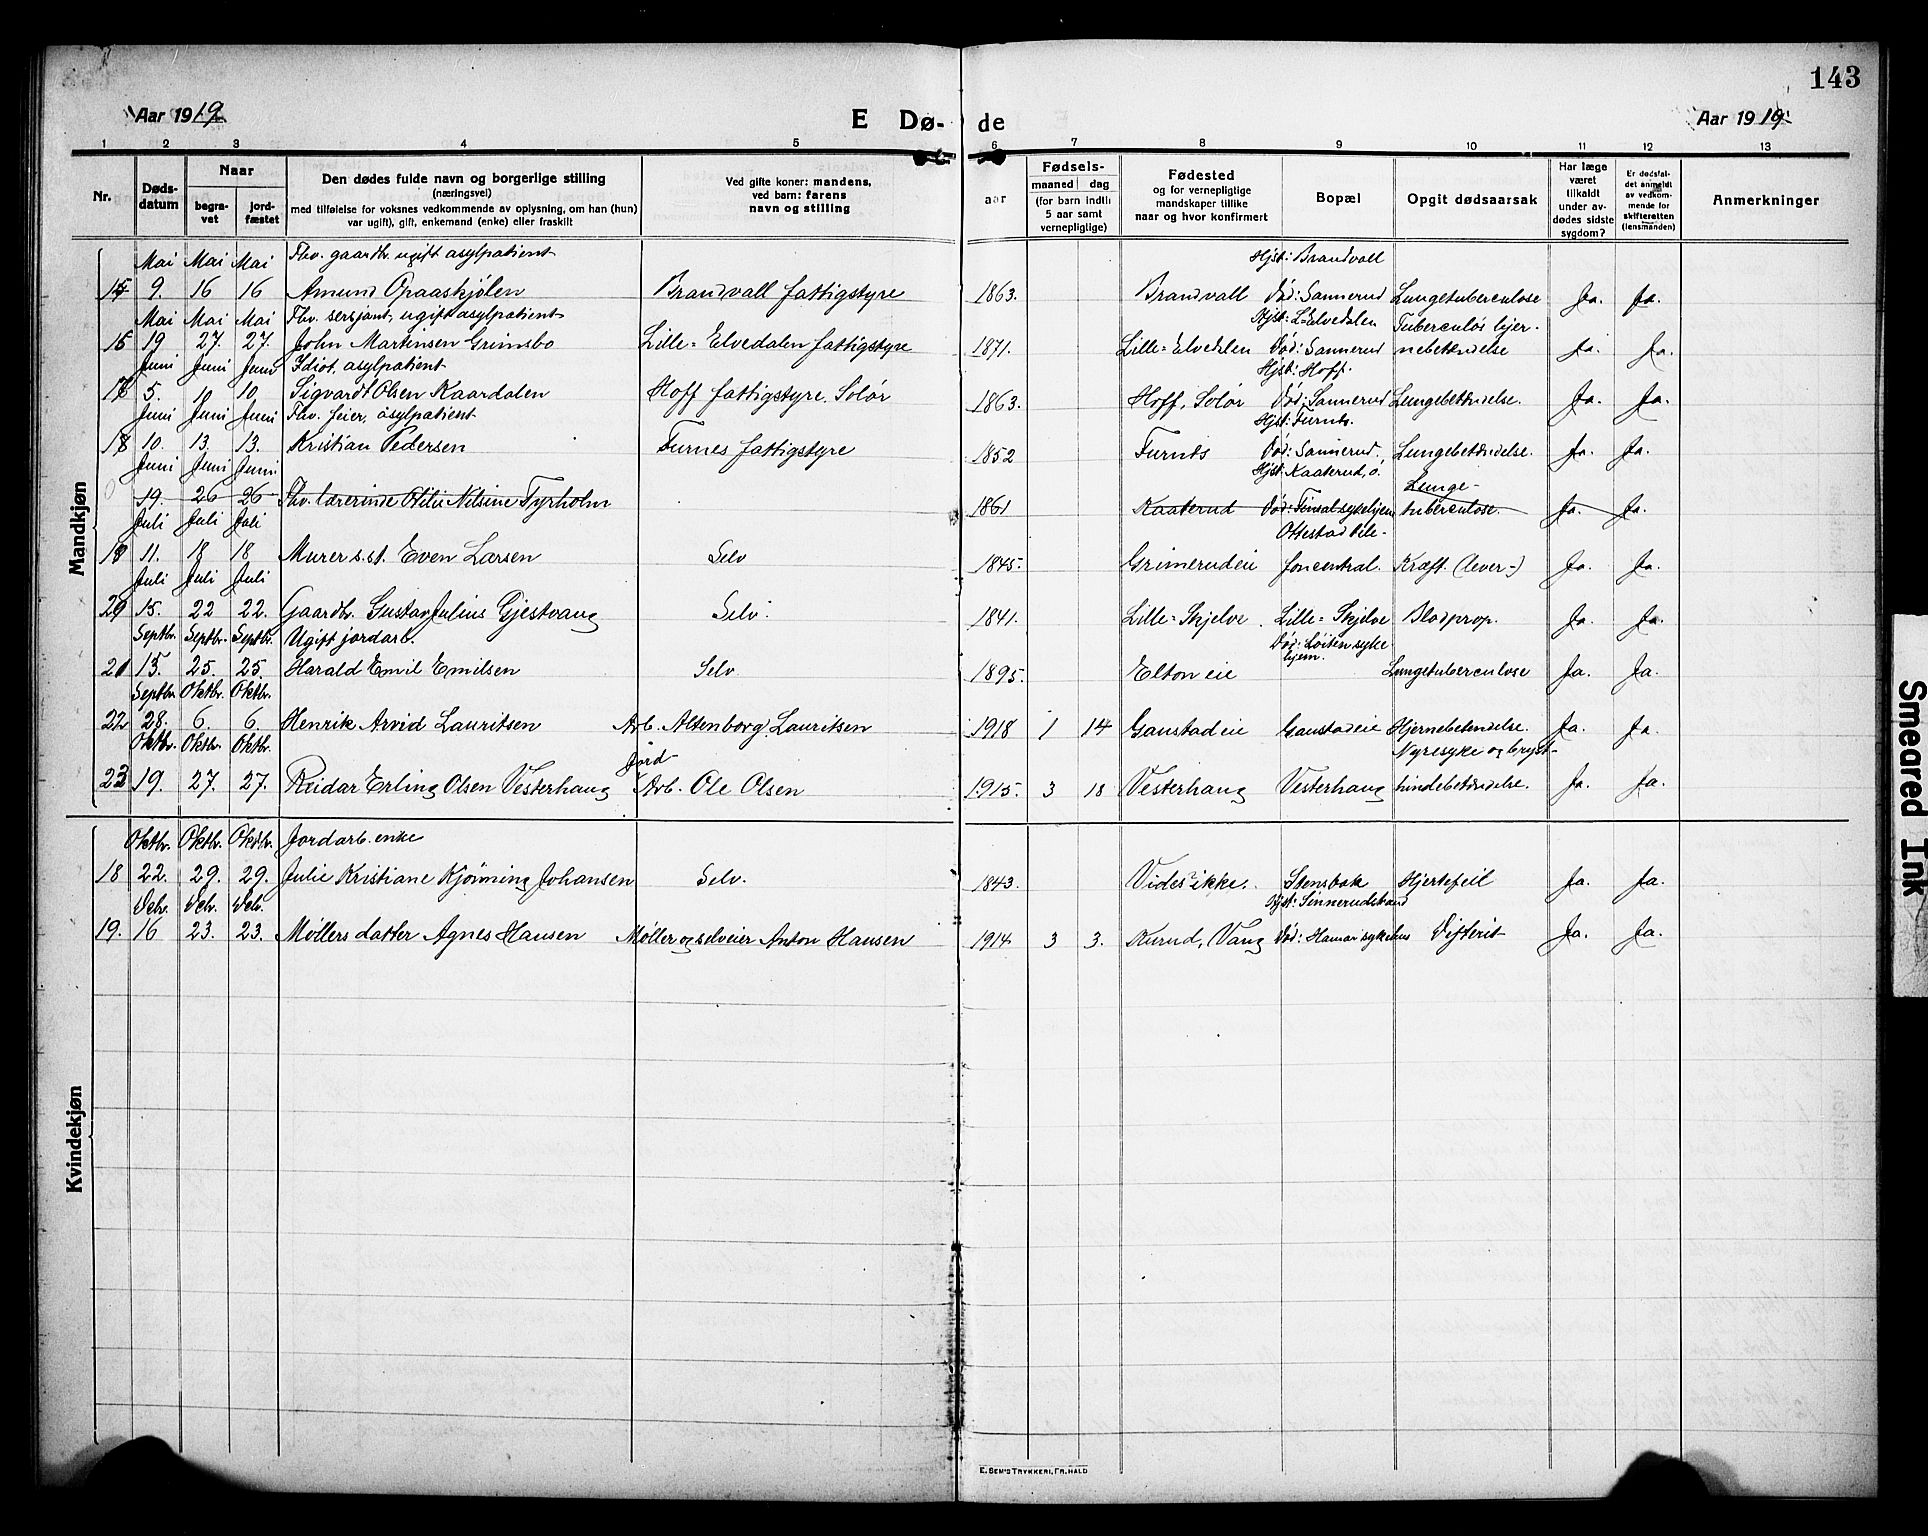 143
Aar 1919
E Dø-
de
Aar 1919
1 2 3 4 5 6 7 8 9 10 11 12 13
Nr.
Døds-
datum
Naar
begra-
vet
jord-
fæstet
Den dødes fulde navn og borgerlige stilling
(næringsvei)
med tilføielse for voksnes vedkommende av oplysning, om han (hun)
var ugift), gift, enkemand (enke) eller fraskilt
Ved gifte koner: mandens,
ved barn: farens
navn og stilling
aar
Fødsels-
maaned dag
(for barn indtil
5 aar samt
vernepligtige)
Fødested
og for vernepligtige
mandskaper tillike
naar og hvor konfirmert
Bopæl
Opgit dødsaarsak
Har læge
været
tilkaldt
under av-
dødes sidste
sygdom?
Er dødsfal-
det anmeldt
av vedkom-
mende for
skifteretten
(lensmanden)
Anmerkninger
Mandkjøn
Mai Mai Mai Fhv. gaardbr. ugift asylpatient Hjst: Brandvall
15 9. 16 16 Amund Opaaskjølen Brandvall fattigstyre 1863. Brandvall Død: Sannerud Lungetuberculose Ja. Ja.
Mai Mai Mai Fhv. sersjant, ugift asylpatient Hjst: L-Elvedalen Tuberculøs hjer-
16 19 27. 27. John Martinsen Grimsbo Lille-Elvedalen fattigstyre 1871. Lille-Elvedalen Død: Sannerud nebetændelse Ja. Ja.
Juni Juni Juni Idiot, asylpatient Hjst: Hoff.
17 5. 10 10. Sigvardt Olsen Kaardalen Hoff fattigstyre. Solør 1863. Hoff, Solør Død: Sannerud Lungebetændelse. Ja. Ja.
Juni Juni Juni Fhv. feier, asylpatient Hjst: Furnes.
18 10. 13. 13. Kristian Pedersen Furnes fattigstyre 1852 Furnes Død: Sannerud. Lungebetændelse. Ja. Ja.
Juni Juni Juni Hjst: Kaaterud, ø. Lunge-
19. 26 26 Fhv. lærerinde Otilie Nilsine Tyrholm 1861 Kaaterud Død: Finsalsykehjem tuberculose. Ja. Ja.
Juli Juli Juli Ottestad tele-
19 11. 18 18 Murer s.st. Even Larsen Selv 1845. Grimerudeie foncentral. Kræft. (lever-) Ja. Ja.
Juli Juli Juli
20 15. 22 22. Gaardbr. Gustav Julius Gjestvang Selv. 1841. Lille-Skjelve. Lille-Skjelve Blodprop. Ja. Ja.
Septbr. Septbr. Septbr. Ugift jordarb. Død: Løiten syke
hjem.
21 15. 25. 25. Harald Emil Emilsen Selv. 1895. Elton eie Lungetuberculose Ja. Ja.
Septbr. Oktbr. Oktbr.
22 28. 6. 6. Henrik Arvid Lauritsen Arb. Altenborg Lauritsen 1918 1 14 Gaustadeie Gaustadeie Hjernebetændelse. Ja. Ja.
Oktbr. Oktbr. Oktbr. Jord- Nyresyke og bryst-
23 19. 27. 27. Reidar Erling Olsen Vesterhaug Arb. Ole Olsen 1915. 3 18 Vesterhaug Vesterhaug hindebetændelse. Ja. Ja.
Kvindekjøn
Oktbr. Oktbr. Oktbr. Jordarb. enke
18 22. 29. 29. Julie Kristiane Kjønning Johansen Selv. 1843. Vides ikke. Stensbak Hjertefeil Ja. Ja.
Debr. Debr. Debr. Hjst: Sinnerudstrand
19. 16 23. 23. Møllers datter Agnes Hansen Møller og selveier Anton Hansen 1914 3 3. Kurud, Vang Død: Hamar sykehus Difterit Ja. Ja.
E. SEM'S TRYKKERI, FR.HALD
Smeared Ink